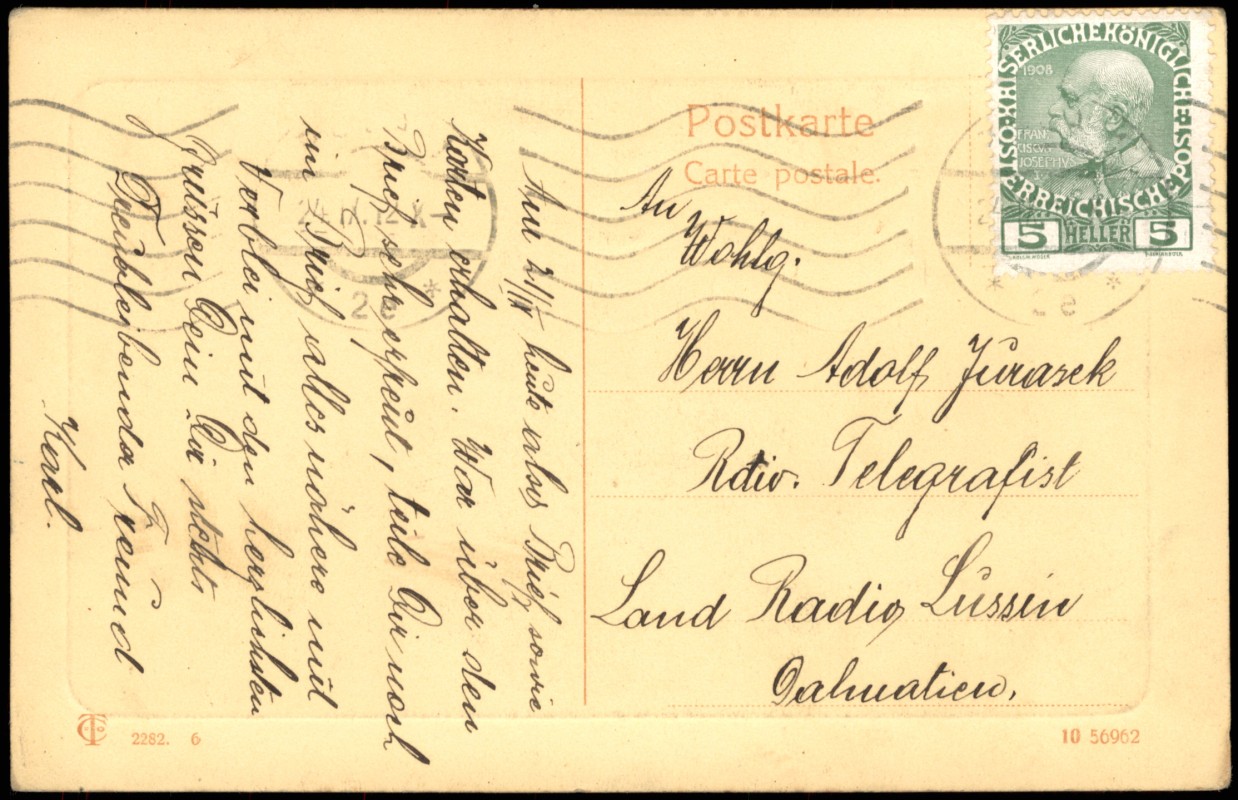 Postkarte
Carte postale.
KAISERLICHEKÖNIGLICHE
ÖSTERREICHISCHEPOST
1908
FRAN
CISCVS
JOSEPHVS
5 HELLER 5
24. X 12 X
2e
An
Wohlg.
Herrn Adolf Jurasek
Rdiv. Telegrafist
Land Radio Lussin
Dalmatien.
Am 21/X heute alses Brief sowie
Karten erhalten. War über den
Brief sehr erfreut, teile Dir noch
ein Brief alles nähere mit
Vorblei mit den herzlichsten
Grüssen Dein Dir stehts
Treubleibender Freund
Karl.
2282. 6
10 56962